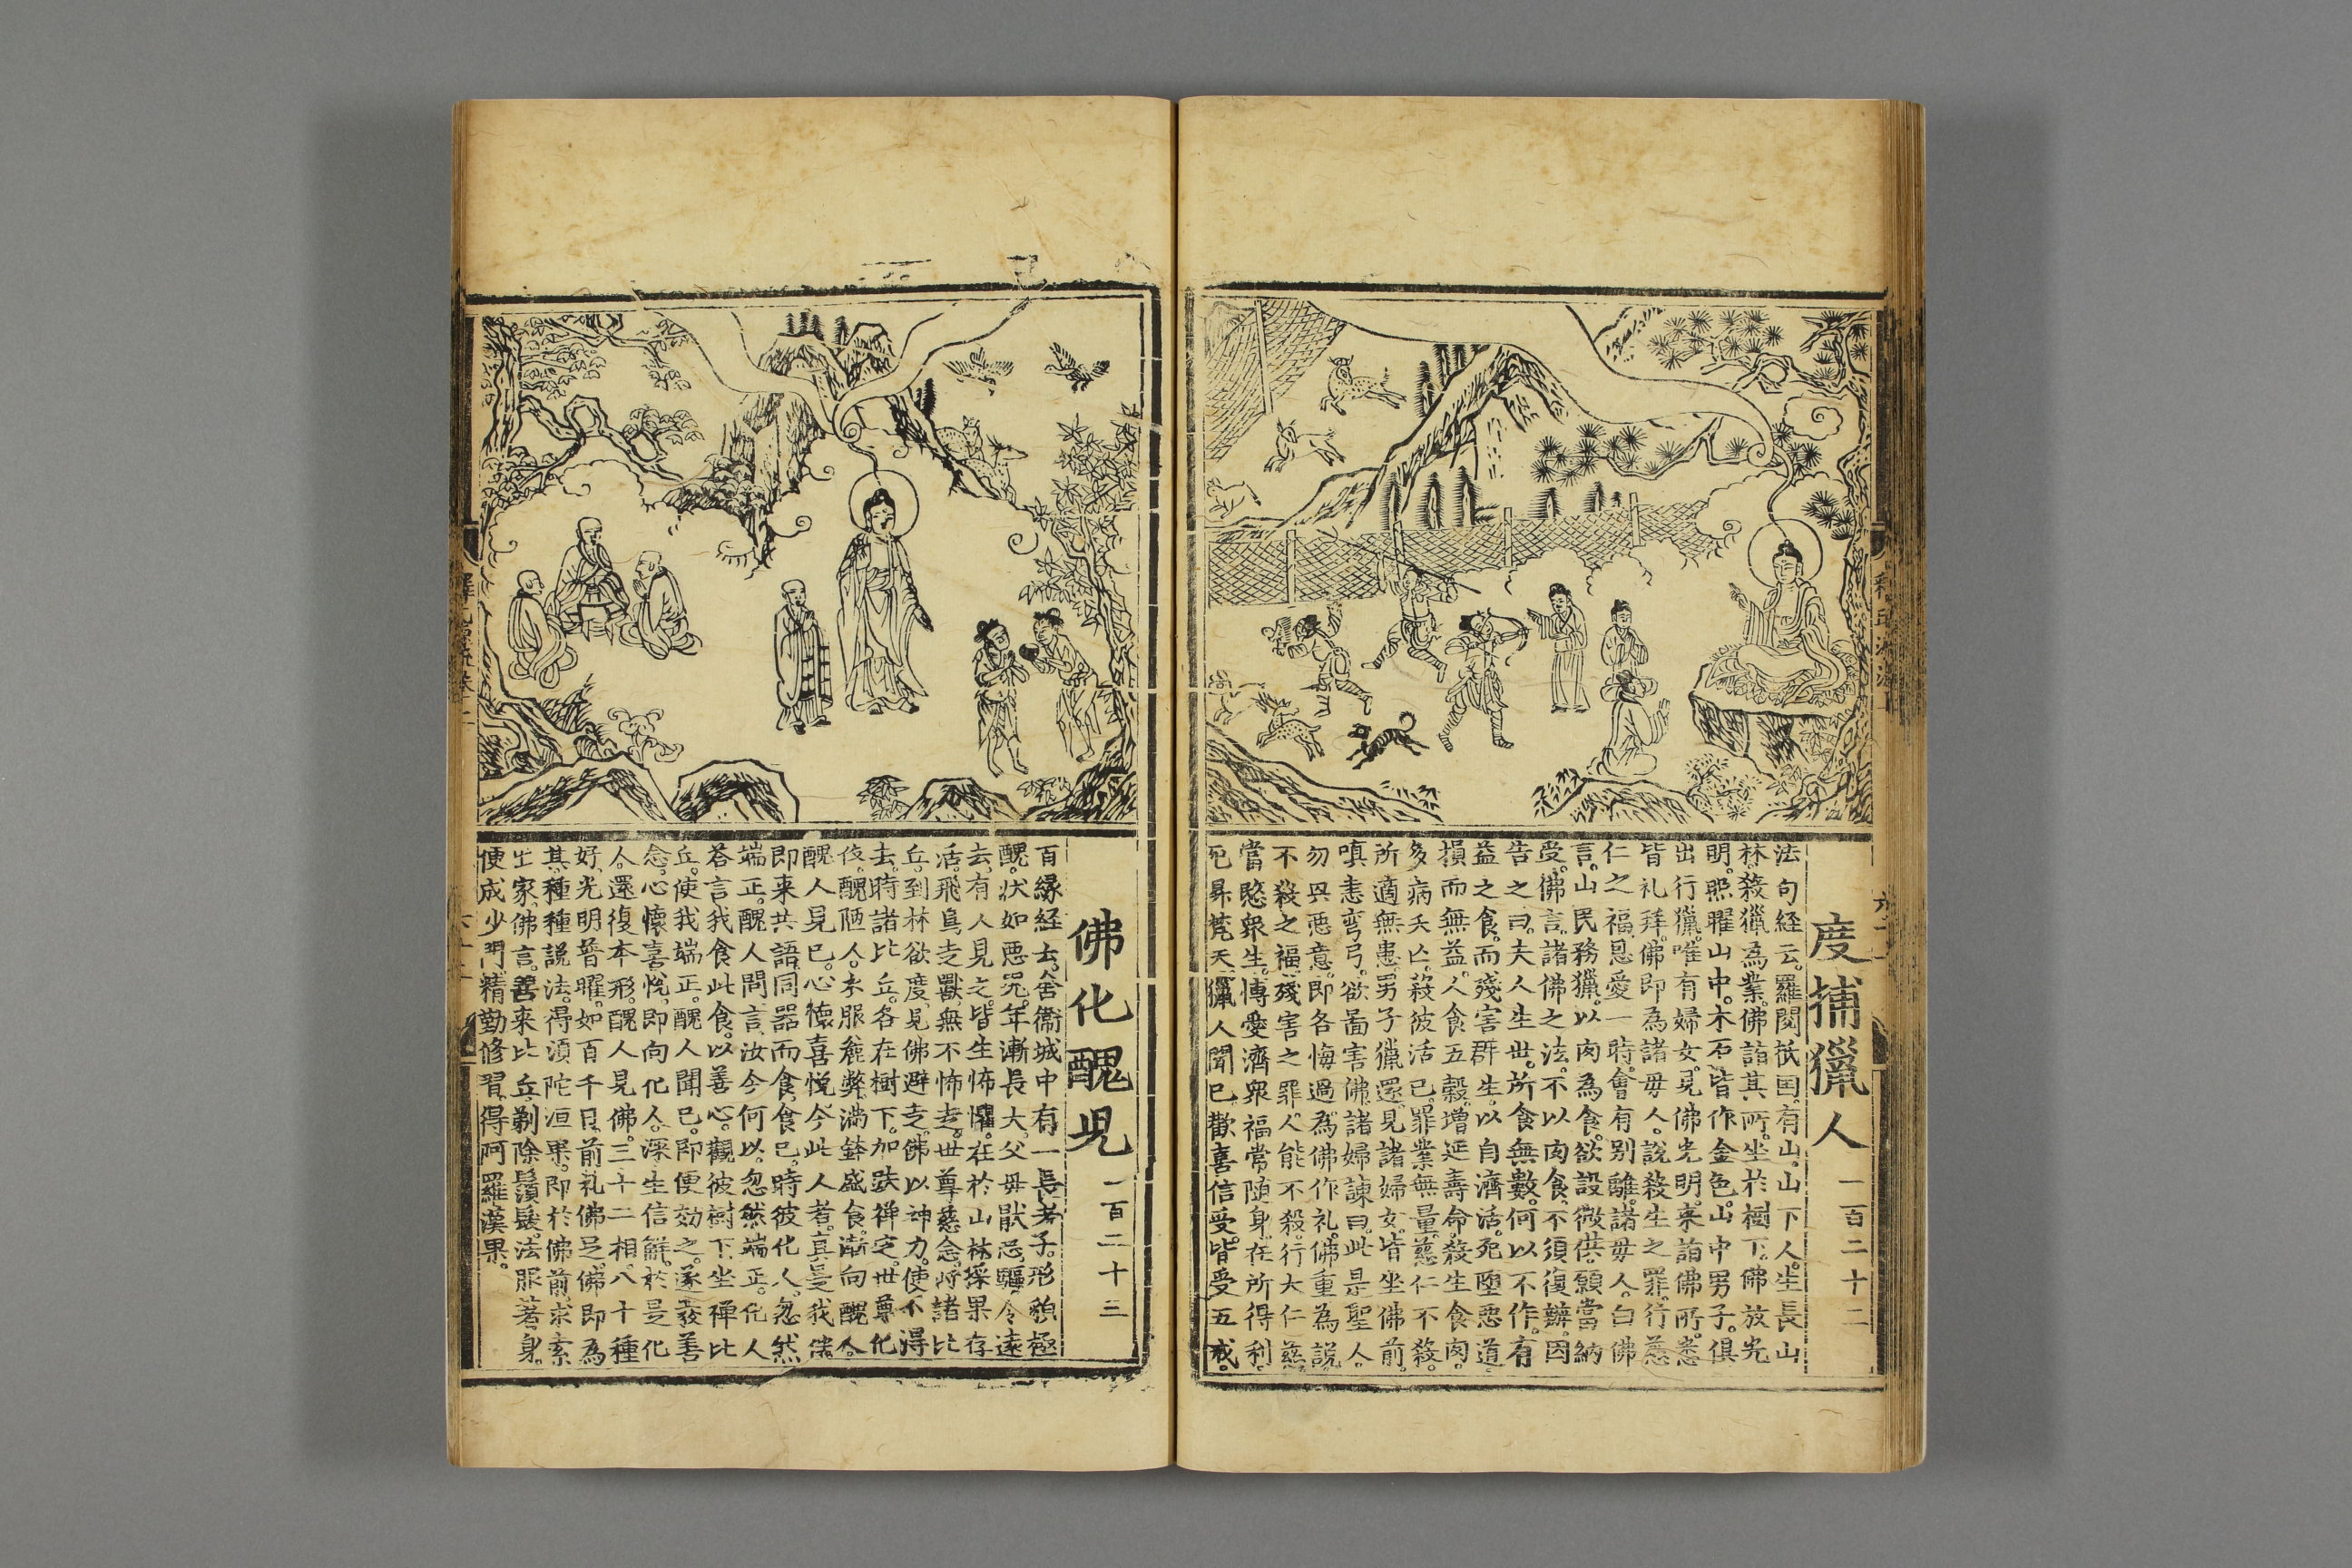 度捕獵人 一百二十二
法句経云。羅閱祇国。有山。山下人。生長山
林。殺獵為業。佛詣其所。坐於樹下。佛放光
明。照曜山中。木石皆作金色。山中男子。俱
出行獵。唯有婦女。見佛光明。来詣佛所。悉
皆礼拜。佛即為諸母人。說殺生之罪。行慈
仁之福。恩愛一時。會有别離。諸母人。白佛
言。山民務獵。以肉為食。欲設微供。願當納
受。佛言。諸佛之法。不以肉食。不須復辦。因
告之曰。夫人生世。所食無數。何以不作。有
益之食。而殘害群生。以自濟活。死墮悪道
損而無益。人食五穀。增延壽命。殺生食肉。
多病夭亡。殺彼活已。罪業無量。慈仁不殺。
所適無患。男子獵還。見諸婦女。皆坐佛前。
嗔恚弯弓。欲啚害佛。諸婦諫曰。此是聖人。
勿興悪意。即各悔過。為佛作礼。佛重為說
不殺之福。殘害之罪。人能不殺。行大仁慈
當愍衆生。博愛濟衆。福常随身。在所得利。
死昇梵天。獵人聞已。歡喜信受。皆受五戒。
佛化醜児 一百二十三
百縁経云。舍衛城中。有一長者子。形貌極
醜。状如悪咒。年漸長大。父母猒忌。驅令遠
去。有人見之。皆生怖懼。在於山林。採果存
活。飛鳥走獸。無不怖走。世尊慈念。將諸比
丘。到林欲度。見佛避走。佛以神力。使不得
去。時諸比丘。各在樹下。加趺禅定。世尊化
作醜陋人。衣服麁弊。滿鉢盛食。漸向醜人。
醜人見已。心懐喜悅。今此人者。真是我儔
即来共語。同器而食。食已。時彼化人。忽然
端正。醜人問言。汝今何以。忽然端正。化人
荅言。我食此食。以善心。觀彼樹下。坐禅比
丘。使我端正。醜人聞已。即便効之。遂發善
念。心懐喜悅。即向化人。深生信解。於是化
人。還復本形。醜人見佛。三十二相。八十種
好。光明普曜。如百千日。前礼佛足。佛即為
其。種種說法。得須陀洹果。即於佛前。求索
出家。佛言。善来比丘。剃除鬚髮。法服著身。
便成沙門。精勤修習。得阿羅漢果。